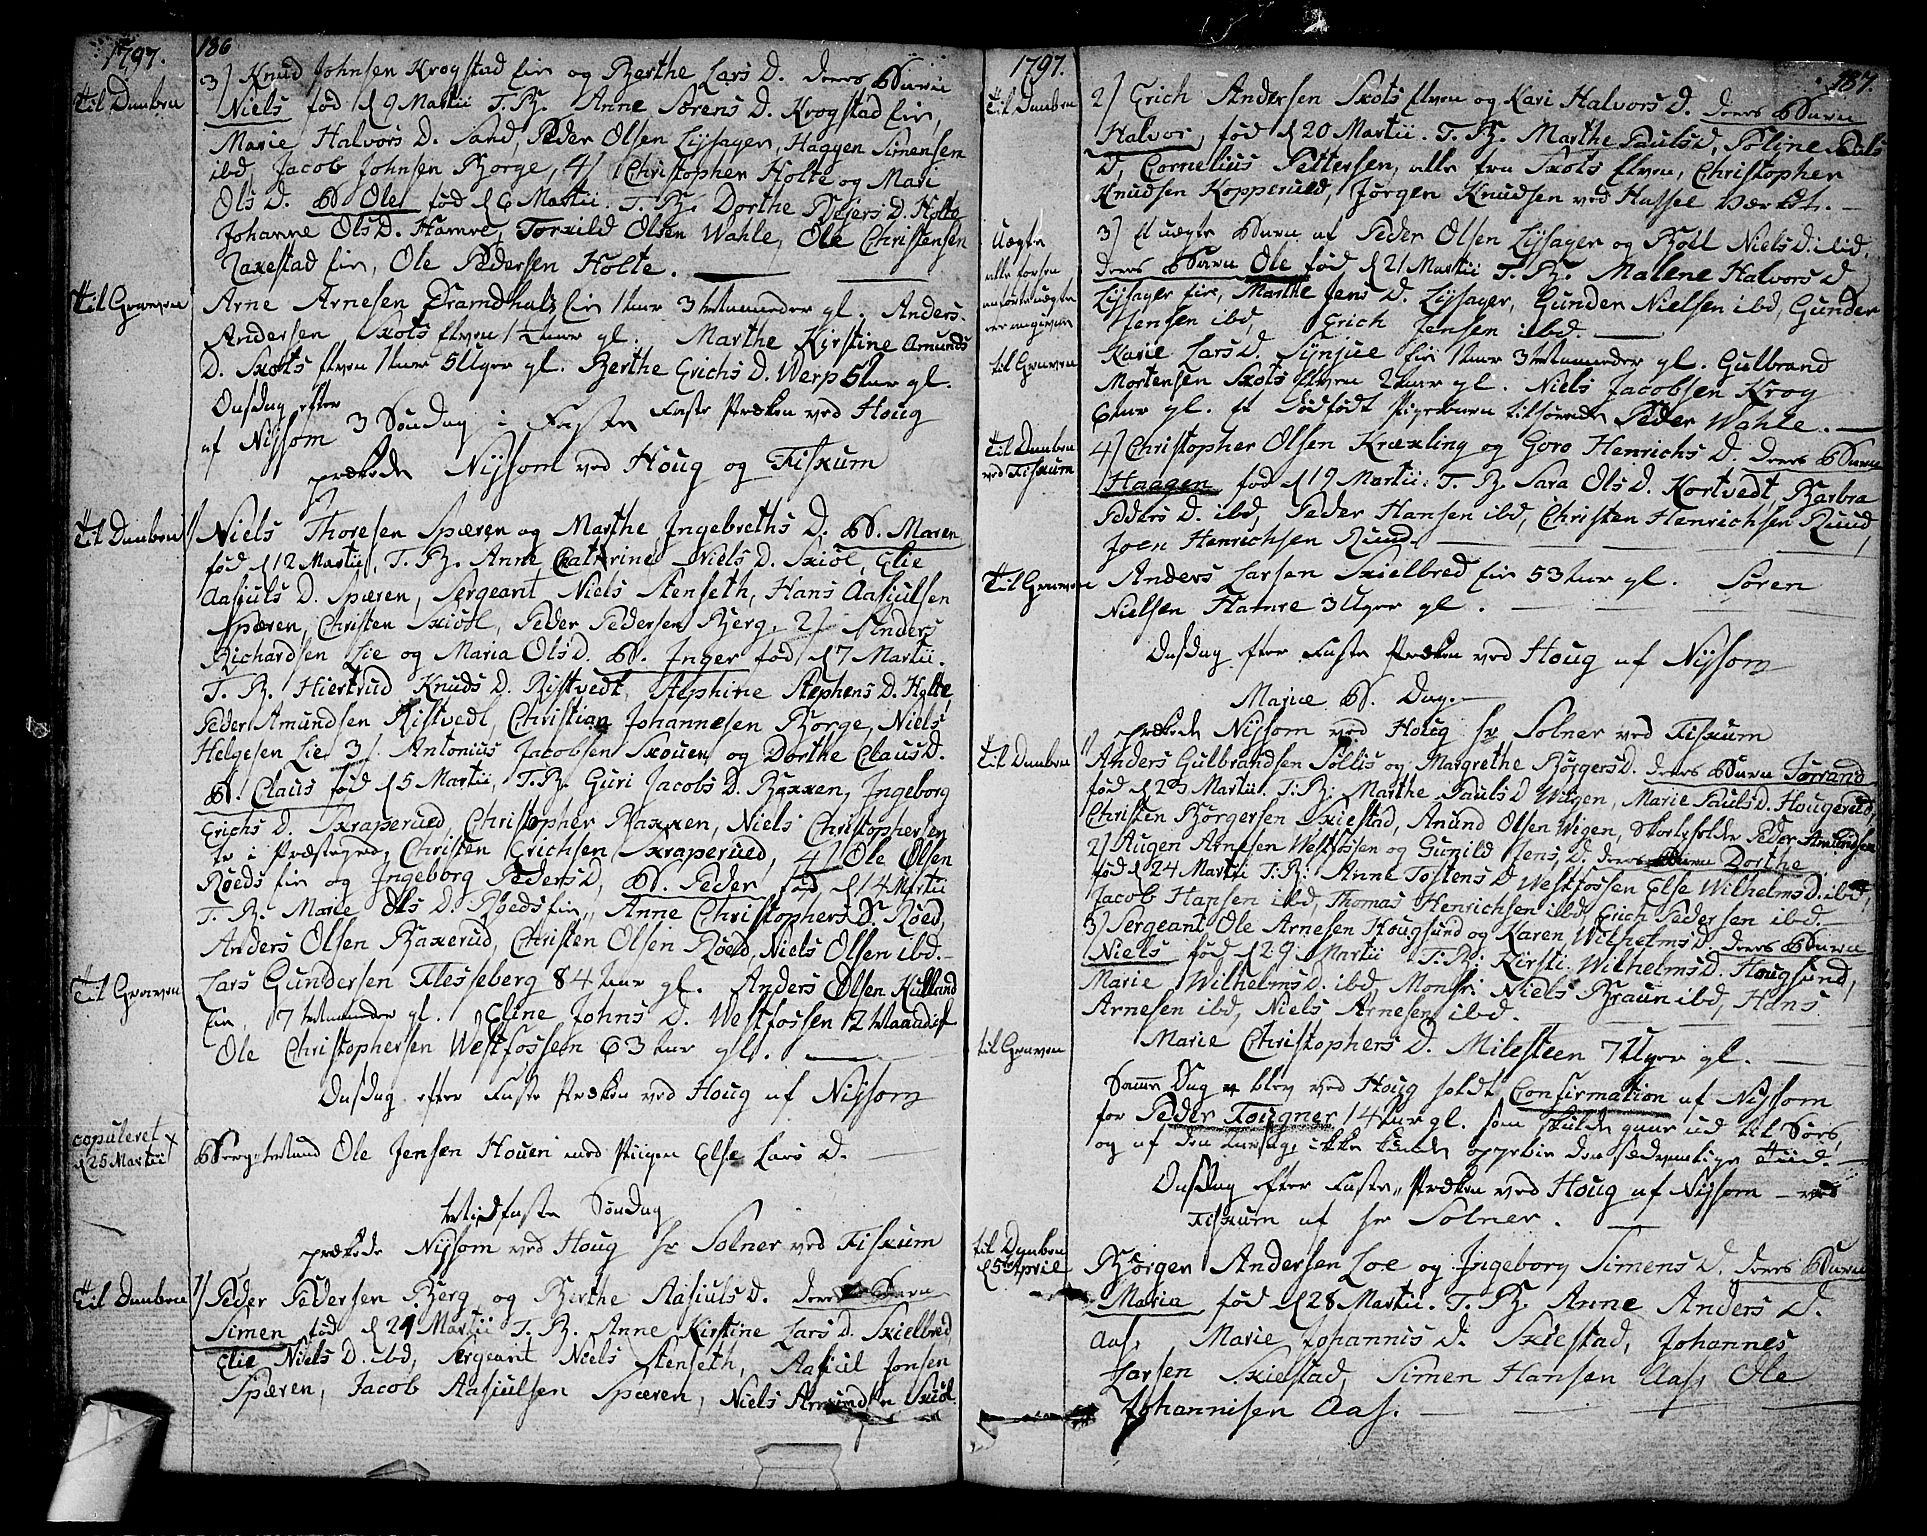 1797. 186
Til Daaben
3/ Knud Johnsen Krogstad Eie og Berthe Lars D. deres Barn
Niels fød d 9 Martii T. B. Anne Sørens D. Krogstad Eie,
Marie Halvors D. Sand, Peder Olsen Lijsager, Haggen Simensen
ibd, Jacob Johnsen Borge, 4/ Christopher Holte og Mari
Ols D. B. Ole fød d 6 Martii. T. B. Dorthe Bejers D. Holte,
Johanne Ols D. Hamre, Torkild Olsen Wahle, Ole Christensen
Taxestad Eie, Ole Pedersen Holte.
Til Graven
Arne Arnesen Dramdhals Eie 1 Aar 3 Maaneder gl. Anders
Andersen Skots Elven 1½ Aar gl. Marthe Kirstine Amunds
D. Skots Elven 1 Aar 5 Uger gl. Berthe Erichs D. Werp 5 Aar gl.
Onsdag efter 3 Søndag i Faste Faste Præken ved Houg
af Nijsom
prækede Nijsom ved Houg og Fiskum
Til Daaben
1/ Niels Thoresen Spæren og Marthe Ingebreths D. B. Maren
fød d 12 Martii, T. B. Anne Cathrine Niels D. Skiøl, Elie
Aasiuls D. Spæren, Sergeant Niels Stenseth, Hans Aasiulsen
Spæren, Christen Skiøl, Peder Pedersen Berg, 2/ Anders
Richardsen Lie og Maria Ols D. B. Inger fød d 7 Martii.
T. B. Hiertrud Knuds D. Ristvedt, Stephine Stephens D. Holte,
Peder Amundsen Ristvedt, Christian Johannesen Borge, Niels
Helgesen Lie 3/ Antonius Jacobsen Skouen og Dorthe Claus D.
B. Claus fød d 5 Martii, T. B. Guri Jacobs D. Bakken, Ingeborg
Erichs D. Skraperued, Christopher Bakken, Niels Christophersen
i Præstegrd, Christen Erichsen Skraperued, 4/ Ole Olsen
Røeds Eie og Ingeborg Peders D, B. Peder fød d 14 Martii
T. B. Marie Ols D. Røeds Eie, Anne Christophers D. Røed,
Anders Olsen Baxerud, Christen Olsen Røed, Niels Olsen ibd.
Til Graven
Lars Gundersen Flesseberg 84 Aar gl. Anders Olsen Kulland
Eie, 7 Maaneder gl. Eline Johns D. Westfossen 12
Ole Christophersen Westfossen 63 Aar gl.
Onsdag efter Faste Præken ved Houg af Nijsom
copuleret
d 25 Martii
Ole Jensen Houen med Pigen Else Lars D.
Midfaste Søndag
prækede Nijsom ved Houg Hr Solner ved Fiskum
Til Daaben
1/ Peder Pedersen Berg og Berthe Aasiuls D. deres Barn
Simen fød d 21 Martii T. B. Anne Kirstine Lars D. Skielbred
Elie Niels D. ibd, Sergeant Niels Stenseth, Aasiul Jonsen
Spæren, Jacob Aasiulsen Spæren, Niels Amundsen Skiøl
1797. 187.
Til Daaben
2/ Erich Andersen Skots Elven og Kari Halvors D. deres Barn
Halvor, fød d 20 Martii. T. B. Marthe Pauls D, Soline
D, Cornelius Pettersen, alle fra Skots Elven, Christopher
Knudsen Kopperued, Jørgen Knudsen ved Hassel Værket.
Uægte
3/ Et uægte Barn af Peder Olsen Lijsager og Boel Niels D. ibid,
deres Barn Ole fød d 21 Martii T. B. Malene Halvors D
Lijsager Eie, Marthe Jens D. Lijsager, Gunder Nielsen ibd, Gunder
Jensen ibd, Erich Jensen ibd.
til Graven
Karie Lars D. Synjue Eie 1 Aar 3 Maaneder gl. Gulbrand
Mortensen Skots Elven 2 Aar gl. Niels Jacobsen Krog
6 Aar gl. et Dødfødt Pigebarn tilhørende Peder Wahle.
Til Daaben
ved Fiskum
4/ Christopher Olsen Krækling og Goro Henrichs D. deres Barn
Haagen fød d 19 Martii: T. B. Sara Ols D. Kortvedt, Barbra
Peders D. ibd, Peder Hansen ibd, Christen Henrichsen Ruud,
Joen Henrichsen Ruud.
Til Graven
Anders Larsen Skielbred Eie 53 Aar gl. Søren
Nielsen Hamre 3 Uger gl.
Onsdag efter Faste Præken ved Houg af Nijsom
Mariæ B. Dag.
prækede Nijsom ved Houg Hr Solner ved Fiskum
Til Daaben
1/ Anders Gulbrandsen Sollis og Margrethe Børgers D. deres Barn Torrand
fød d 23 Martii. T. B: Marthe Pauls D Wigen, Marie Pauls D. Hougerud,
Christen Børgersen Skiestad, Anund Olsen Wigen, Skoleholder Peder Amundsen
2/ Augen Arnesen Westfossen og Gunild Jens D. deres Barn Dorthe
fød d 24 Martii T. B: Anne Tostens D Westfossen Else Wilhelms D. ibd,
Jacob Hansen ibd, Thomas Henrichsen ibd, Erich Pedersen ibd.
3/ Sergeant Ole Arnesen Hougsund og Karen Wilhelms D. deres Barn
Niels fød d 29 Martii T. B: Kirsti Wilhelms D. Hougsund,
Marie Wilhelms D. ibd, Monsr: Niels Braun ibd, Hans
Arnesen ibd, Niels Arnesen ibd.
til Graven
Marie Christophers D. Milesteen 7 Uger gl.
Samme Dag blev ved Houg holdt Confirmation af Nijsom
for Peder Toigner 14 Aar gl. som skulde gaae ud til Søes,
og af den Aarsag ikke kunde oppebie den sædvanlige Tiid.
Onsdag efter Faste Præken ved Houg af Nijsom – ved
Fiskum af Hr Solner.
til Daaben
d 5 April
Børgen Andersen Loe og Ingeborg Simens D. deres Barn
Maria fød d 28 Martii. T. B. Anne Anders D.
Aas, Marie Johannis D. Skiestad, Johannes
Larsen Skiestad, Simen Hansen Aas, Ole
Johannisen Aas.